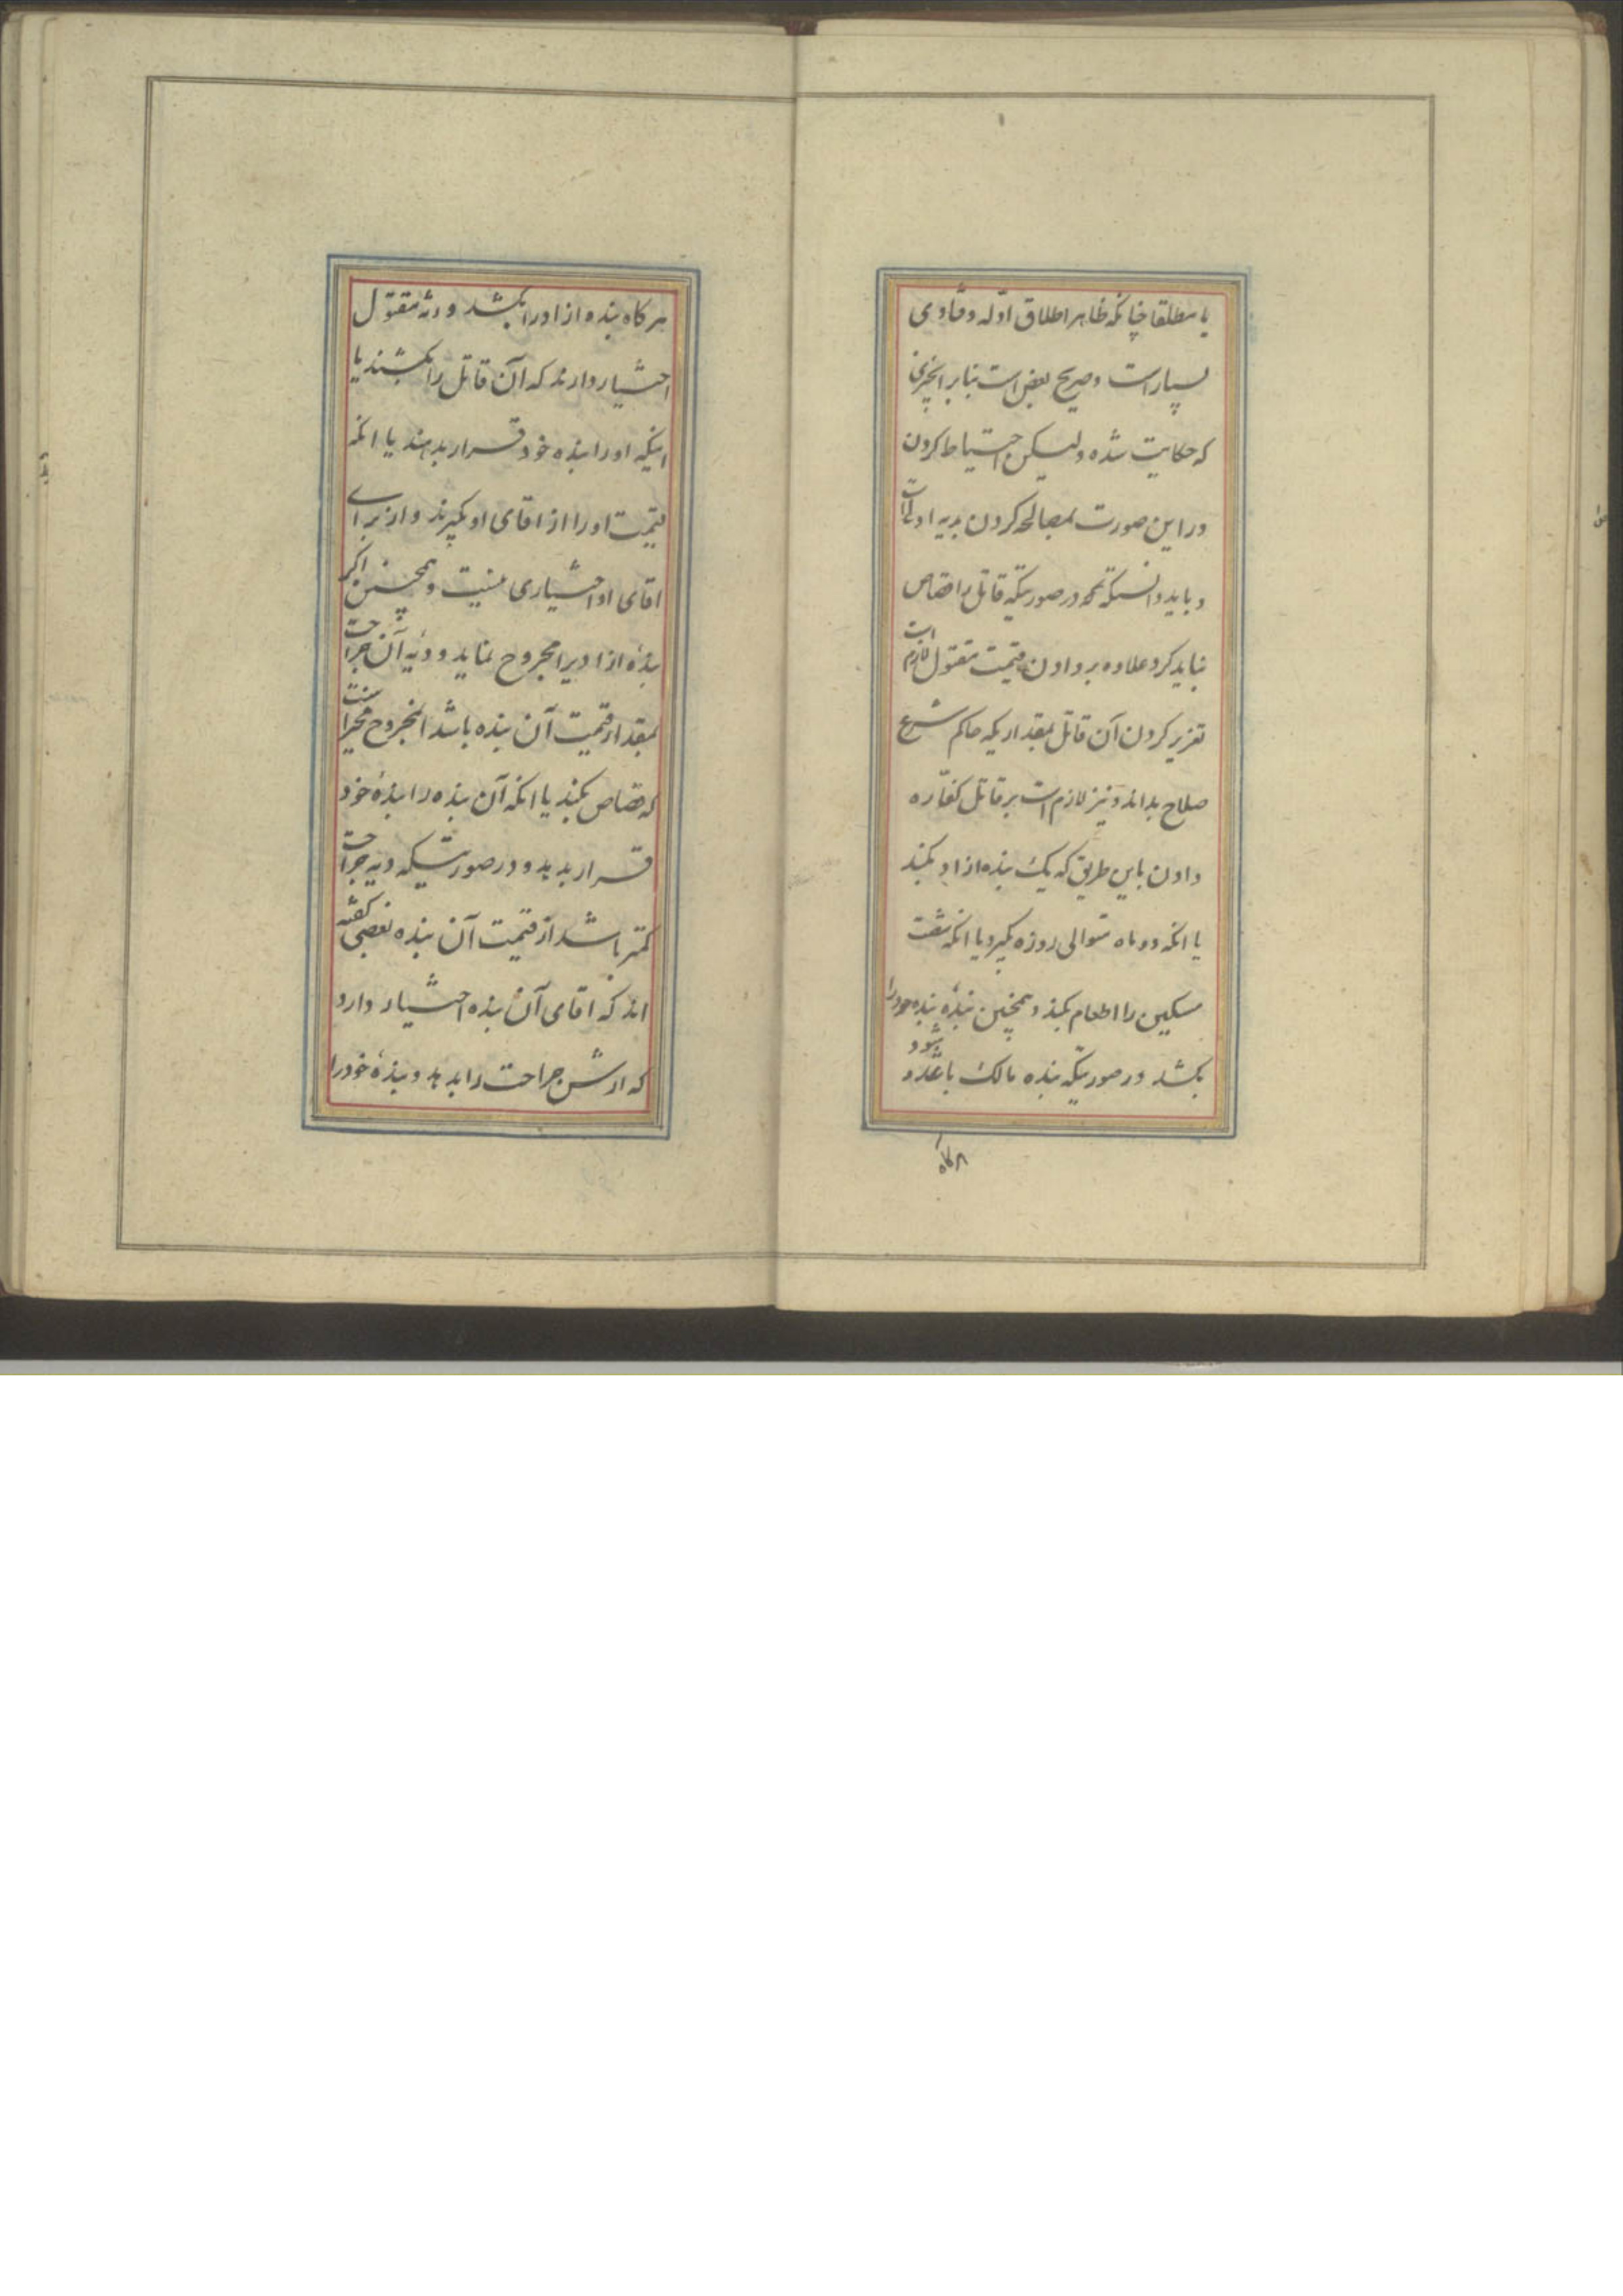 یا مطلقا چنانکه ظاهر اطلاق ادله و فتاوی
بسیار است و صریح بعض است بنا بر آنچیزی
که حکایت شده ولیکن احتیاط کردن
در این صورت بمصالحه کردن بدیه اولی است
و باید دانست که در صورتیکه قاتل را قصاص
نباید کرد علاوه بر دادن قیمت مقتول لازم است
تعزیر کردن آن قاتل بمقداریکه حاکم شرع
صلاح بداند و نیز لازم است بر قاتل کفّاره
دادن باین طریق که یک بنده ازاد بکند
یا انکه دو ماه متوالی روزه بگیرد یا انکه شصت
مسکین را اطعام بکند و همچنین بندهٔ بنده خود را
بکشد در صورتیکه بنده مالک باشد و بشود
هرگاه
هرکاه بنده ازاد را بکشد ورثه مقتول
اختیار دارند که آن قاتل را بکشند یا
اینکه او را بنده خود قرار بدهند یا انکه
قیمت او را از اقای او بگیرند و از برای
اقای او اختیاری نیست و همچنین اگر
بندهٔ ازادیرا مجروح نماید و دیهٔ آن جراحت
بمقدار قیمت آن بنده باشد آنمجروح مخیر است
که قصاص بکند یا انکه آن بنده را بندهٔ خود
قرار بدهد و در صورتیکه دیه جراحت
کمتر باشد از قیمت آن بنده بعضی گفته
اند که اقای آن بنده اختیار دارد
که ارش جراحت را بدهد و بندهٔ خود را